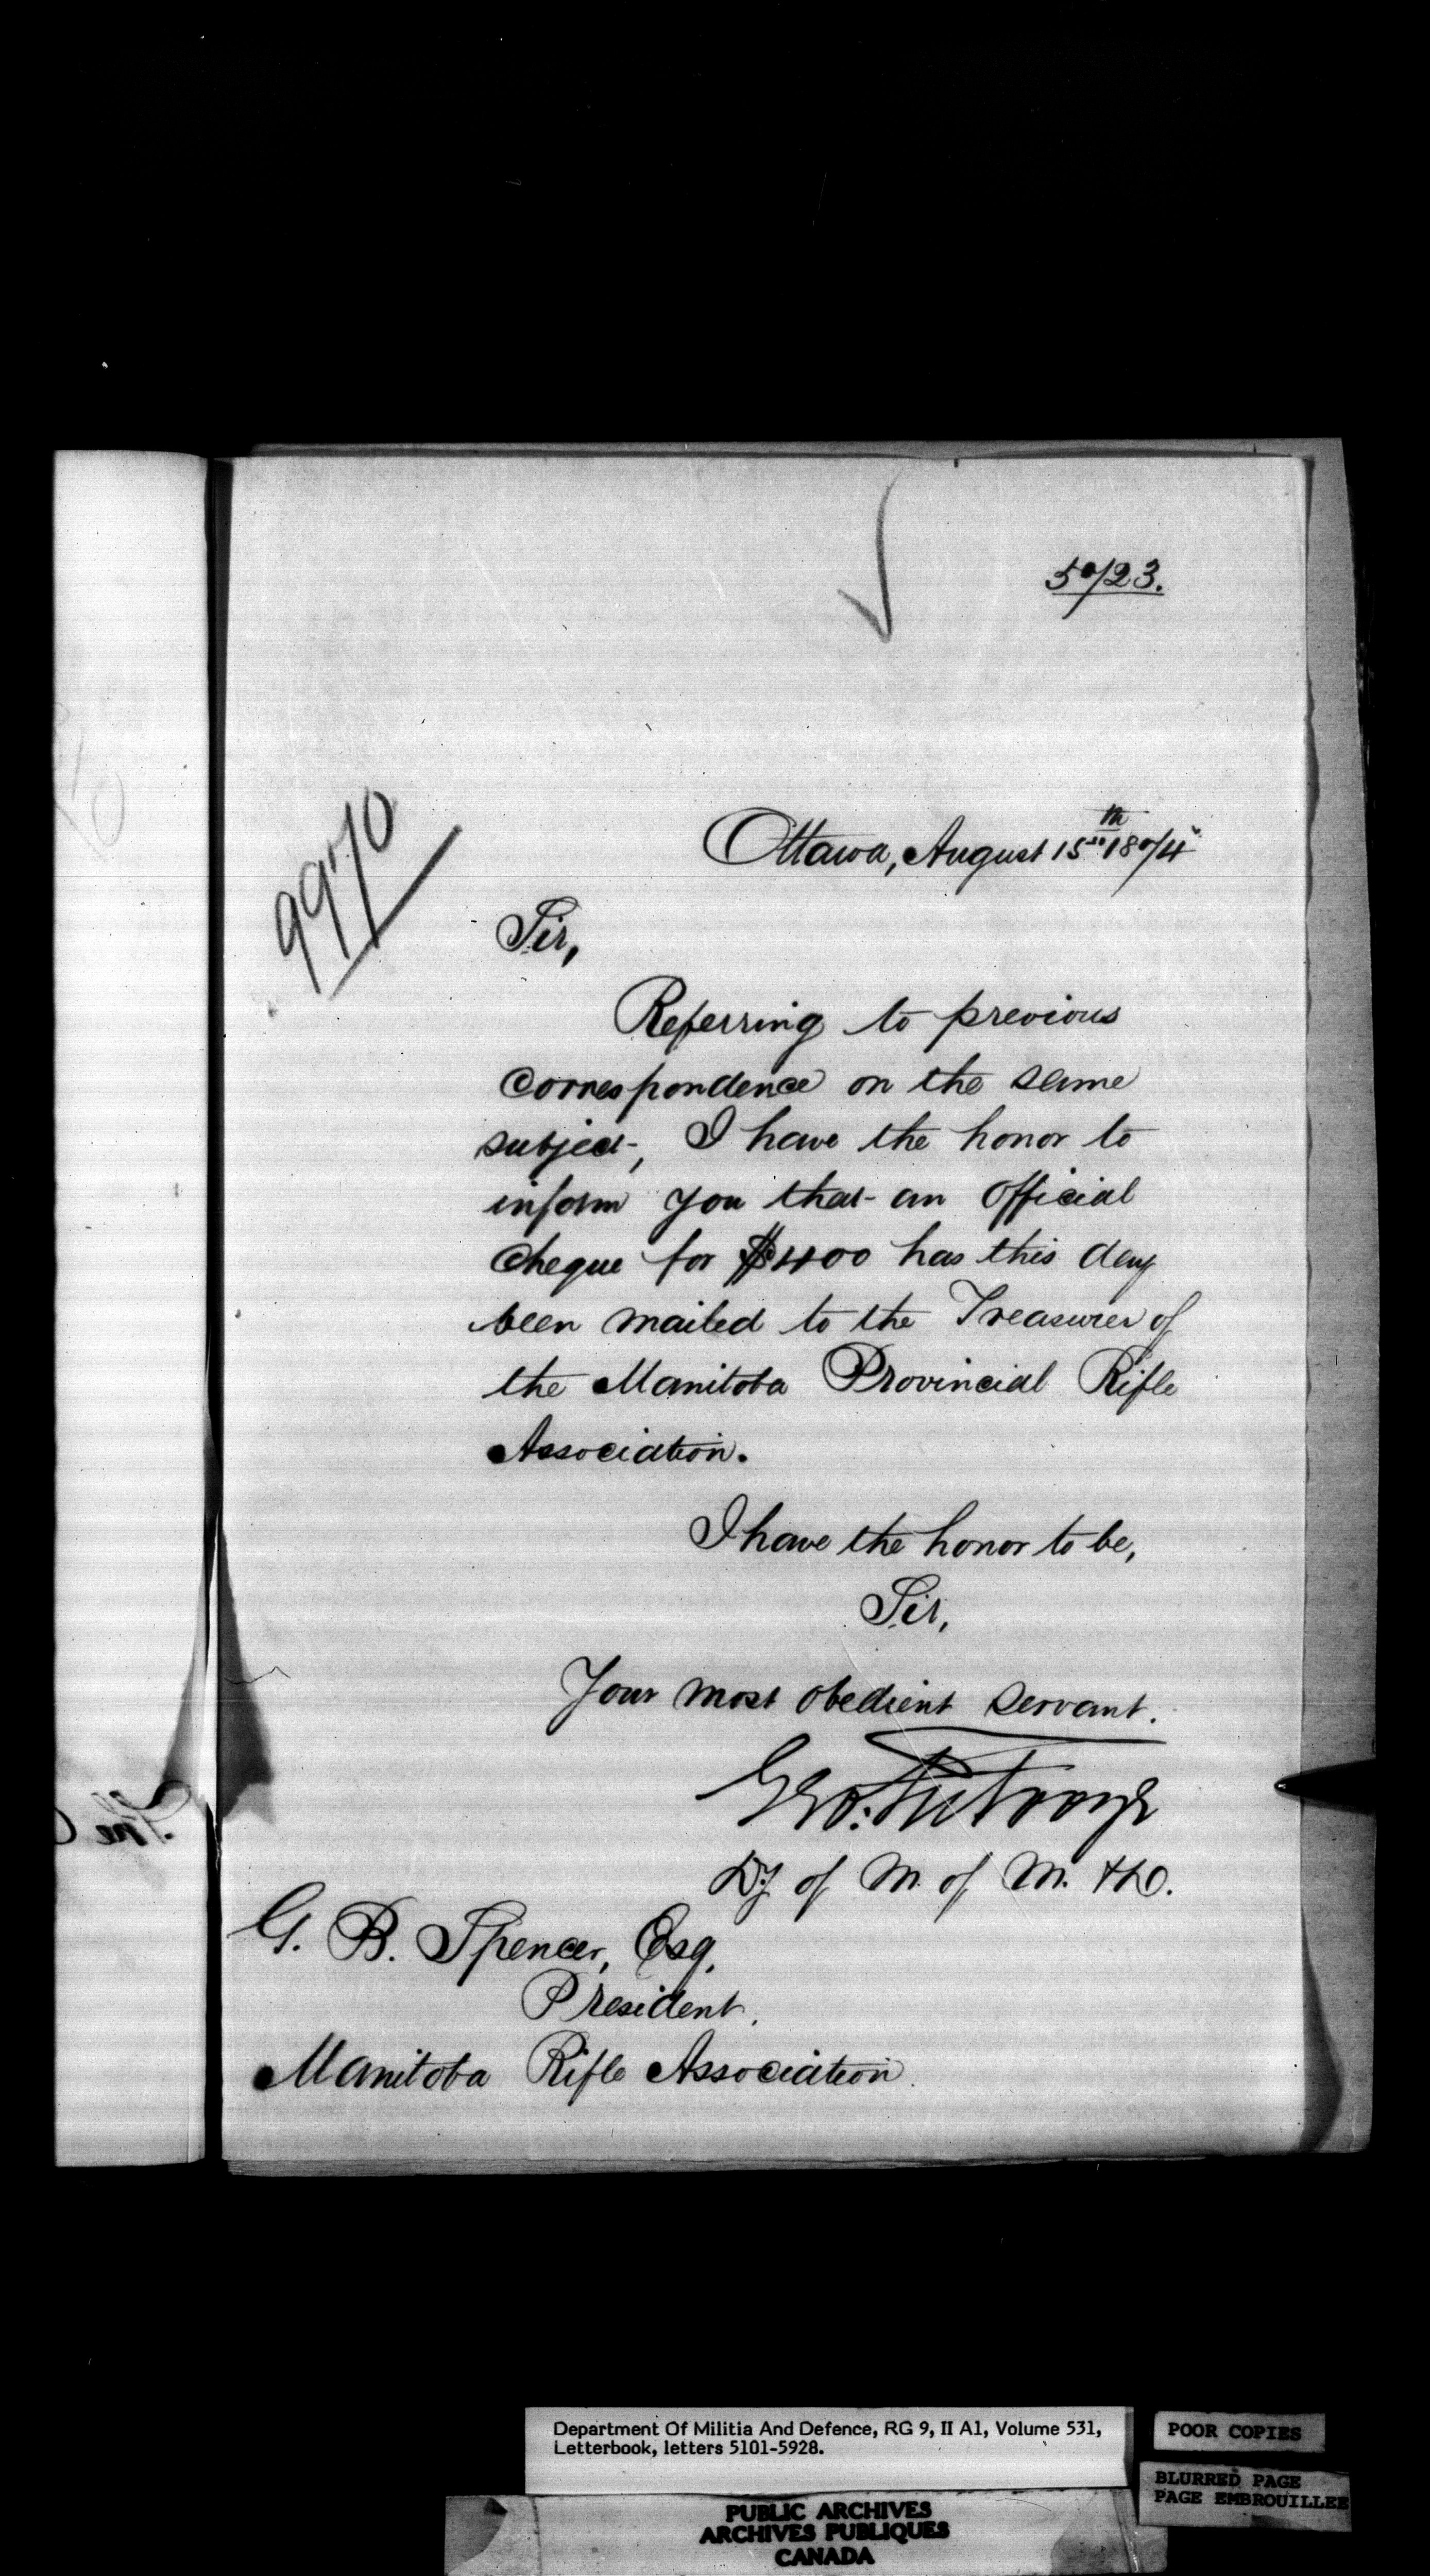 5723.
9970
Ottawa, August 15th 1874
Sir,
Referring to previous
correspondence on the same
subject, I have the honor to
inform you that an official
cheque for $400 has this day
been mailed to the Treasurer of
the Manitoba Provincial Rifle
Association.
I have the honor to be,
Sir,
Your most obedient servant.
Geo. Futvoye
Dy of M. of M. & D.
G. B. Spencer, Esq,
President.
Manitoba Rifle Association.
Department Of Militia And Defence, RG 9, II A1, Volume 531,
Letterbook, letters 5101-5928.
POOR COPIES
BLURRED PAGE
PAGE EMBROUILLEE
PUBLIC ARCHIVES
ARCHIVES PUBLIQUES
CANADA